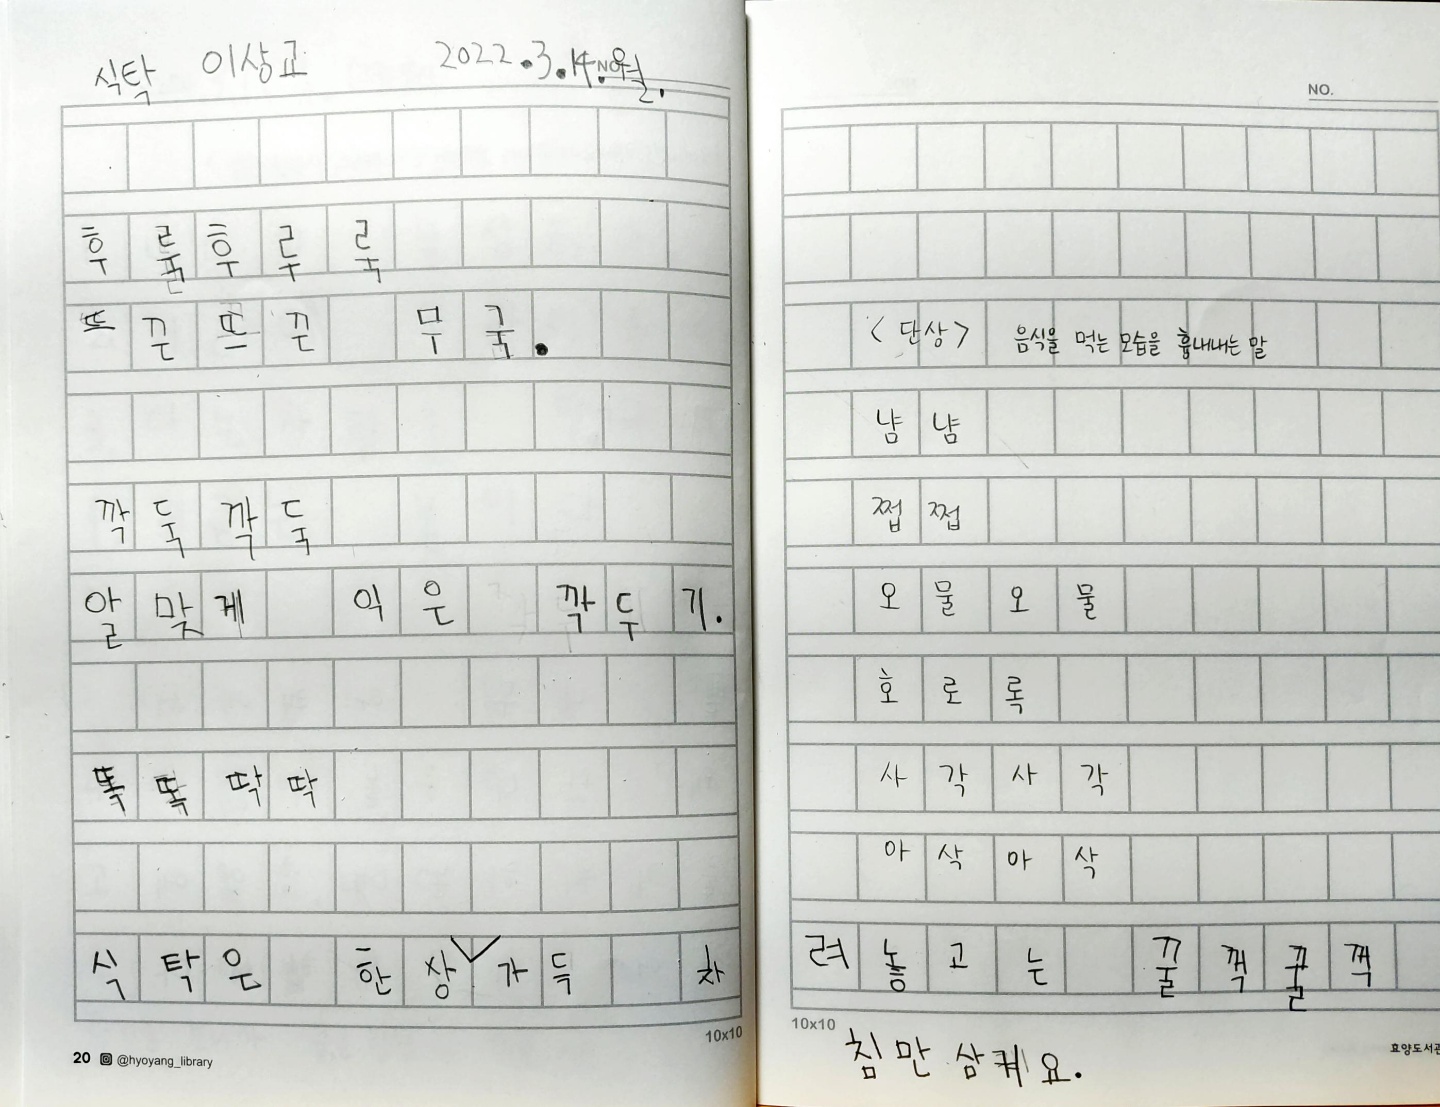 식탁 이상교 2022.3.14.월.
NO.
후룰후루룩
뜨끈뜨끈 무국.
깍둑깍둑
알맞게 익은 깍두기.
똑똑딱딱
식탁은 한상가득 차
10x10
20 @hyoyang_library
NO.
〈단상〉 음식을 먹는 모습을 흉내내는 말
냠냠
쩝쩝
오물오물
호로록
사각사각
아삭아삭
려놓고는 꿀꺽꿀꺽
10x10
침만 삼켜요.
효양도서관